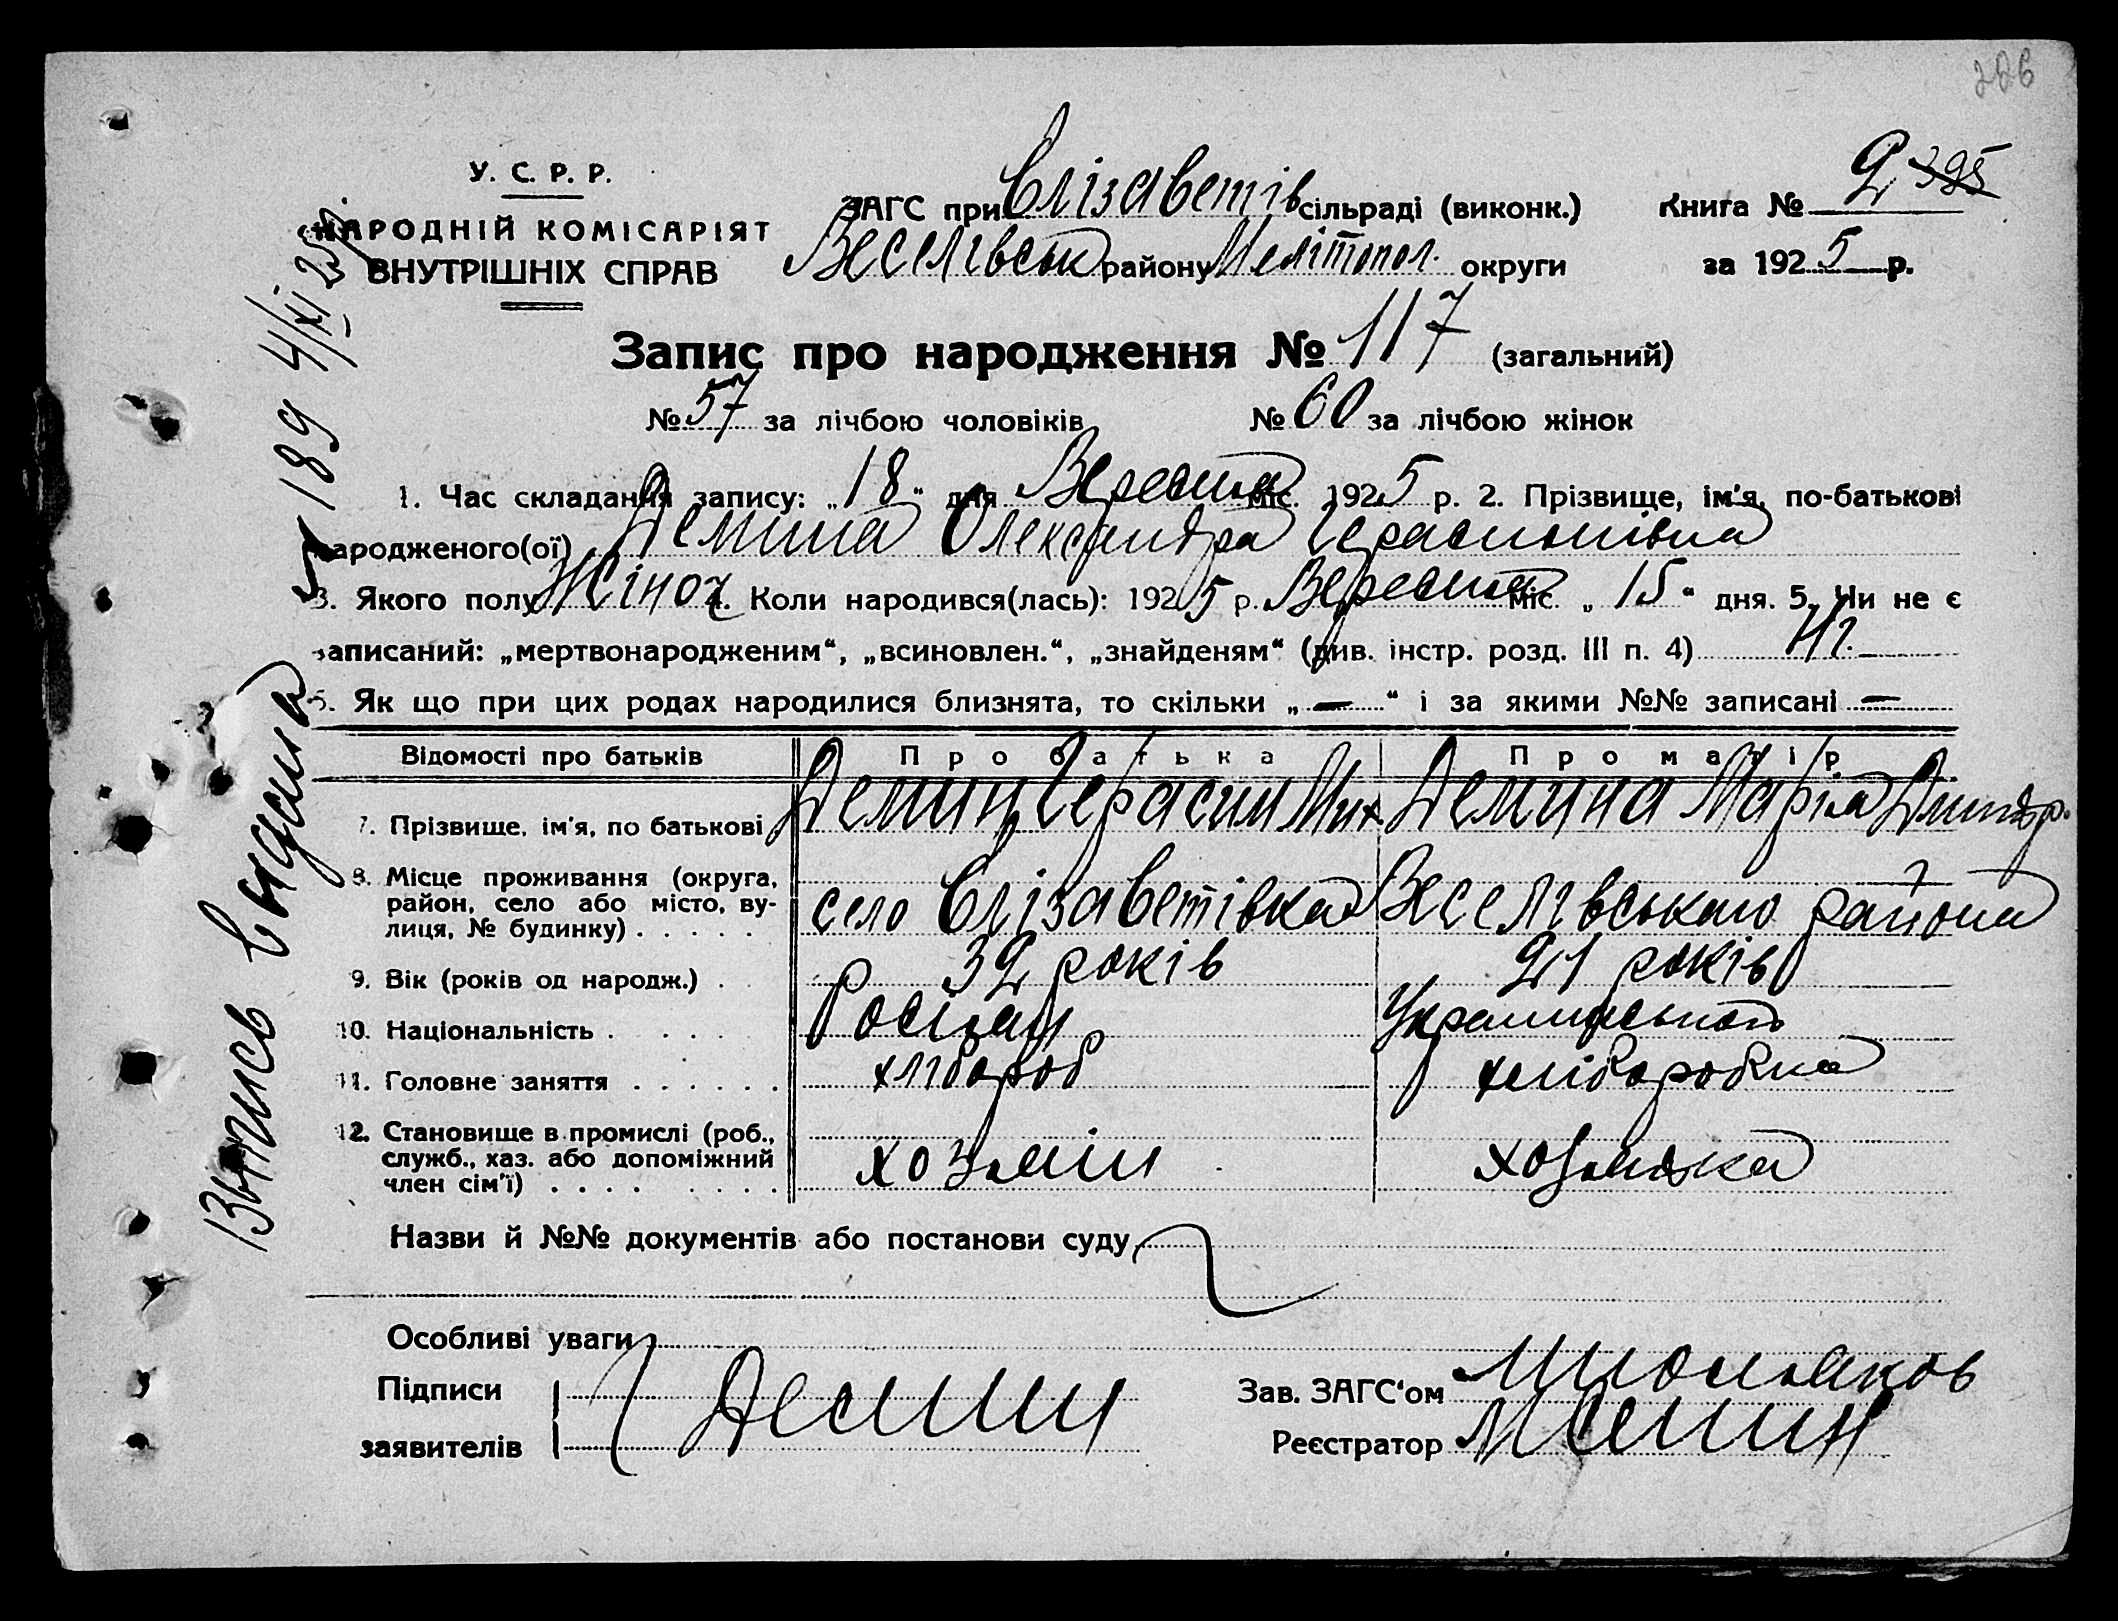 206
У. С. Р. Р.
НАРОДНІЙ КОМІСАРІЯТ
ВНУТРІШНІХ СПРАВ
ЗАГС при Єлізаветів сільраді (виконк.)
Веселівськ району Мелітопол. округи
Книга № 2 395
за 1925 р.
Запис про народження № 117 (загальний)
№ 57 за лічбою чоловіків № 60 за лічбою жінок
1. Час складання запису: „18" дня Вересня міс. 1925 р. 2. Прізвище, ім'я, по-батькові
народженого(ої) Демина Олександра Герасимівна
3. Якого полу Жіноч 4. Коли народився(лась): 1925 р. Вересня міс. „15" дня. 5. Чи не є
записаний: „мертвонародженим", „всиновлен.", „знайденям" (див. інстр. розд. III п. 4) Ні.
6. Як що при цих родах народилися близнята, то скільки „—" і за якими №№ записані —
Відомості про батьків Про батька Про матір
7. Прізвище, ім'я, по батькові Демин Герасим Мих Демина Марія Дмитр.
8. Місце проживання (округа, район, село або місто, вулиця, № будинку) . . . . . село Єлізаветівка Веселівського района
9. Вік (років од народж.) . . 32 років 21 років
10. Національність . . . . Росіян
11. Головне заняття . . . . . . хлібороб хліборобка
12. Становище в промислі (роб., служб., хаз. або допоміжний член сім'ї) . . . . . . . . хозяїн хозяйка
Назви й №№ документів або постанови суду
Особливі уваги
Підписи
заявителів Демин
Зав. ЗАГС'ом
Реєстратор
№ 189 4/XI 25
выпись видана